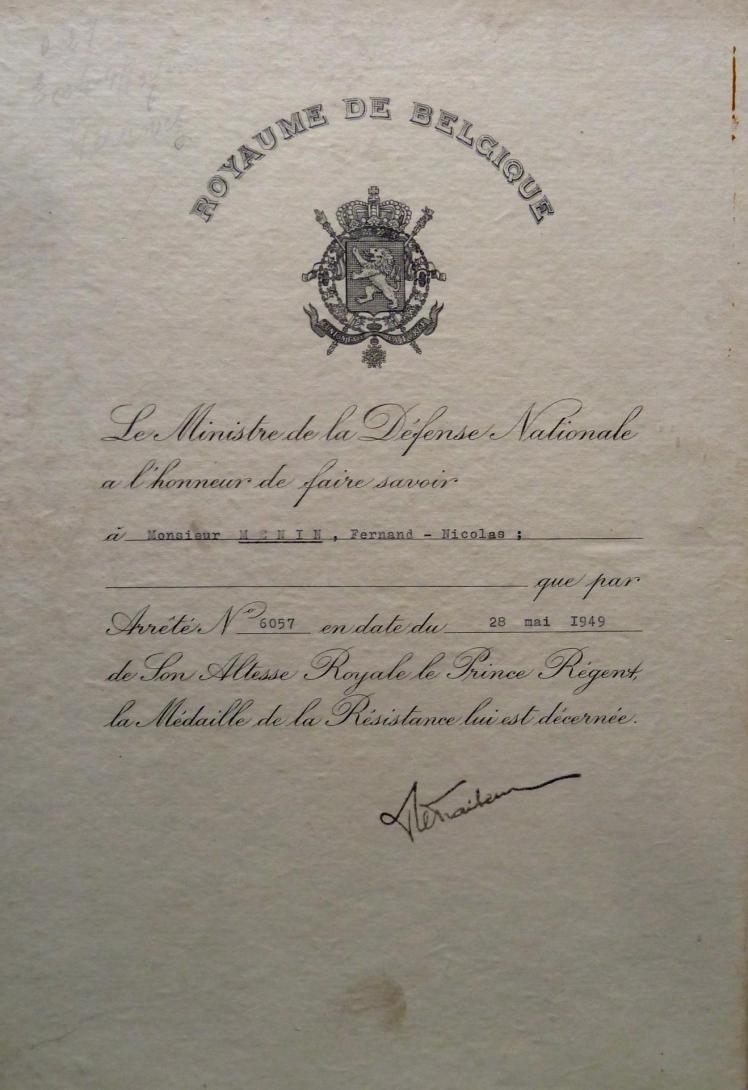 ROYAUME DE BELGIQUE
Le Ministre de la Défense Nationale
a l'honneur de faire savoir
à Monsieur MENIN, Fernand - Nicolas ;
que par
Arrêté No 6057 en date du 28 mai 1949
de Son Altesse Royale le Prince Régent,
la Médaille de la Résistance lui est décernée.